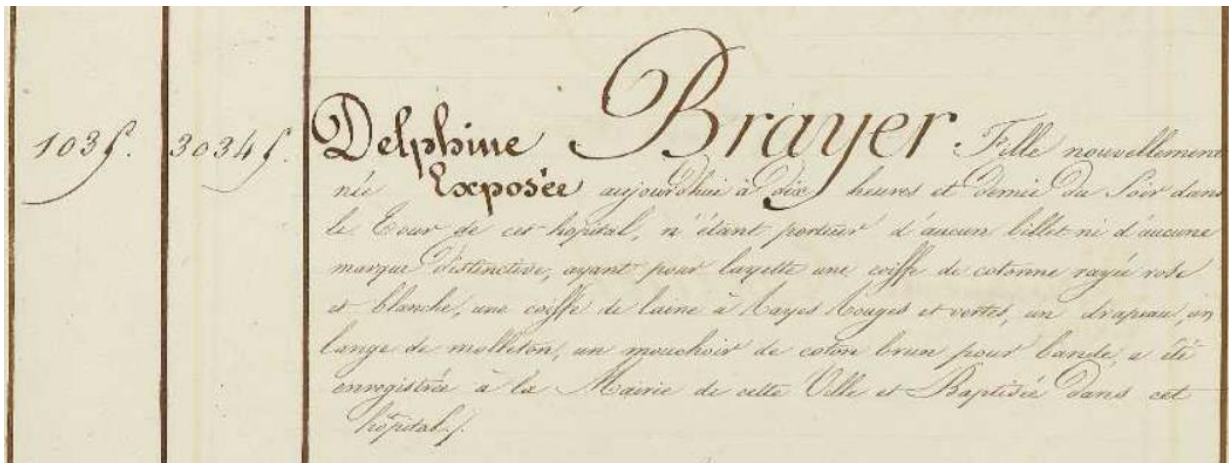 103 f. 3034 f. Delphine Brayer. Fille nouvellement
née Exposée aujourd'hui à dix heures et demie du Soir dans
le Tour de cet hopital, n'étant porteur d'aucun billet ni d'aucune
marque distinctive, ayant pour layette une coiffe de cotonne rayée rose
et blanche, une coiffe de laine à rayes rouges et vertes, un drapeau, un
lange de molleton, un mouchoir de coton brun pour bande, a été
enregistrée à la Mairie de cette Ville et Baptisée dans cet
hôpital./.